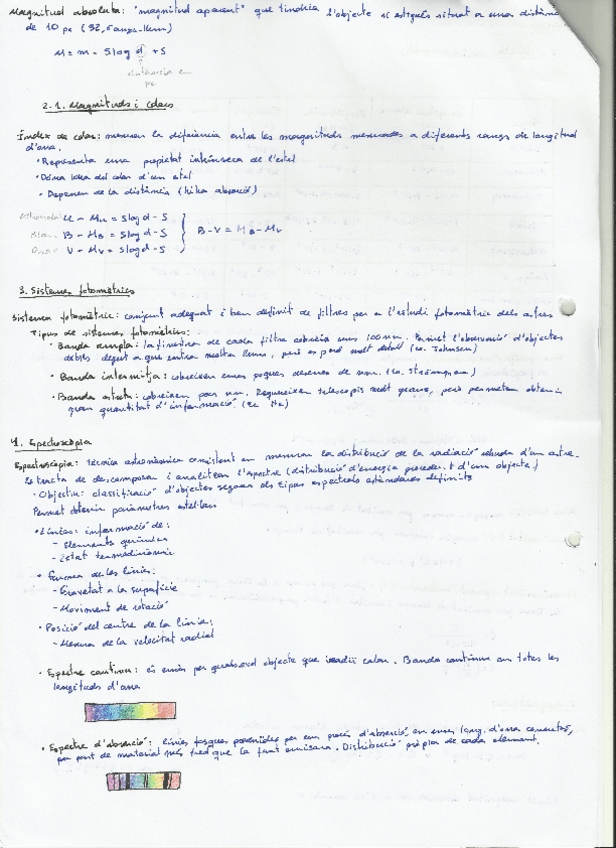 Magnitud absoluta: "magnitud aparent" que tindria l'objecte si estigués situat a una distància
de 10 pc (32,6 anys-llum)
M = m - 5 log d + 5
distància en
pc
2.1. Magnituds i colors
Índex de color: mesuren la diferència entre les magnituds mesurades a diferents rangs de longitud
d'ona.
· Representa una propietat intrínseca de l'estel
· Dóna idea del color d'un estel
· Depenen de la distància (hi ha absorció)
U - Mu = 5 log d - 5
Blau B - MB = 5 log d - 5
V - Mv = 5 log d - 5
B - V = MB - Mv
3. Sistemes fotomètrics
Sistema fotomètric: conjunt adequat i ben definit de filtres per a l'estudi fotomètric dels astres
Tipus de sistemes fotomètrics:
· Banda ampla: la finestra de cada filtre cobreix uns 100 nm. Permet l'observació d'objectes
dèbils degut a que entra molta llum, però es perd molt detall (ex. Johnson)
· Banda intermitja: cobreixen unes poques desenes de nm. (ex. Strömgren)
· Banda estreta: cobreixen pocs nm. Requereixen telescopis molt grans, però permeten obtenir
gran quantitat d'informació (ex Hα)
1. Espectroscòpia
Espectroscòpia: tècnica astronòmica consistent en mesurar la distribució de la radiació rebuda d'un astre.
Es tracta de descomposar i analitzar l'espectre (distribució d'energia proceden t d'un objecte.)
· Objectiu: classificació d'objectes segons els tipus espectrals estàndards definits
Permet obtenir paràmetres estel·lars
· Línies: informació de:
- Elements químics
- Estat termodinàmic
· Forma de les línies:
- Gravetat a la superfície
- Moviment de rotació
· Posició del centre de la línia:
- Mesura de la velocitat radial
· Espectre continu: és emès per qualsevol objecte que irradii calor. Banda contínua en totes les
longituds d'ona
· Espectre d'absorció: línies fosques produïdes per un procés d'absorció en unes long. d'ona concretes,
per part de material més fred que la font emissora. Distribució pròpia de cada element.